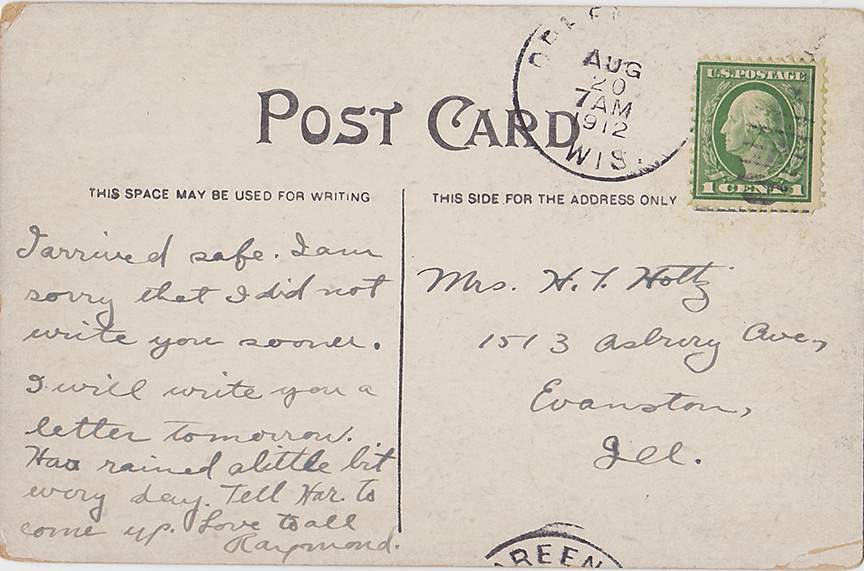 POST CARD
AUG
20
7AM
1912
WIS.
U.S. POSTAGE
1 CENT 1
THIS SPACE MAY BE USED FOR WRITING
THIS SIDE FOR THE ADDRESS ONLY
I arrived safe. I am
sorry that I did not
write you sooner.
I will write you a
letter tomorrow.
Has rained alittle bit
every day. Tell Har. to
come up. Love to all
Raymond.
Mrs. H. T. Holtz
1513 Asbury Ave,
Evanston,
Ill.
REEN